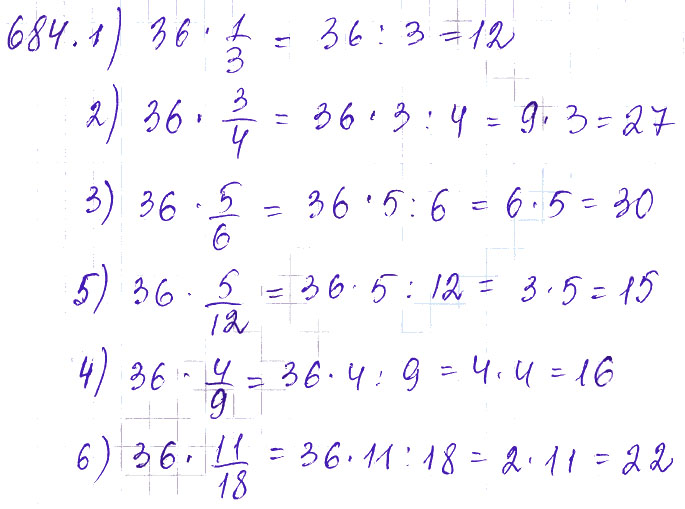 684. 1) 36 · 1/3 = 36 : 3 = 12
2) 36 · 3/4 = 36 · 3 : 4 = 9 · 3 = 27
3) 36 · 5/6 = 36 · 5 : 6 = 6 · 5 = 30
5) 36 · 5/12 = 36 · 5 : 12 = 3 · 5 = 15
4) 36 · 4/9 = 36 · 4 : 9 = 4 · 4 = 16
6) 36 · 11/18 = 36 · 11 : 18 = 2 · 11 = 22